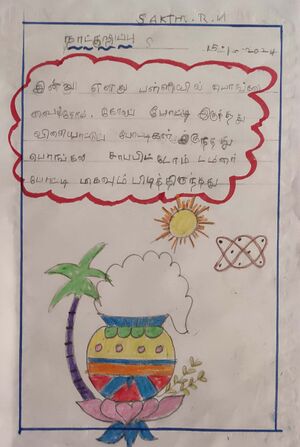 SAKTHI.R.N
நாட்குறிப்பு
15.1.2024
இன்று எனது பள்ளியில் பொங்கல்
கோலப் போட்டி இருந்தது
விளையாட்டு போட்டிகள் இருந்தது
பொங்கல் சாப்பிட்டோம்
போட்டி மிகவும் பிடித்திருந்தது